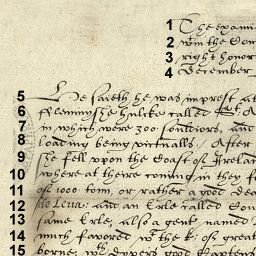 1 The exami
2 wth in the Coun
3 right honor
4 December
5 He saieth he was imprest at
6 fflemmishe hulke called
7 in which were 300 souldiors, and
8 loading being victualls. After
9 she fell upon the Coast of Ireland
10 where at theire coming in they f
11 of 1000 tonn, or rather a good dea
12 de Leiva: and an Erle called Cou
13 same Erle, also a gent named
14 much favored wth the K. of great
15 borne, wth dyvers good Captens